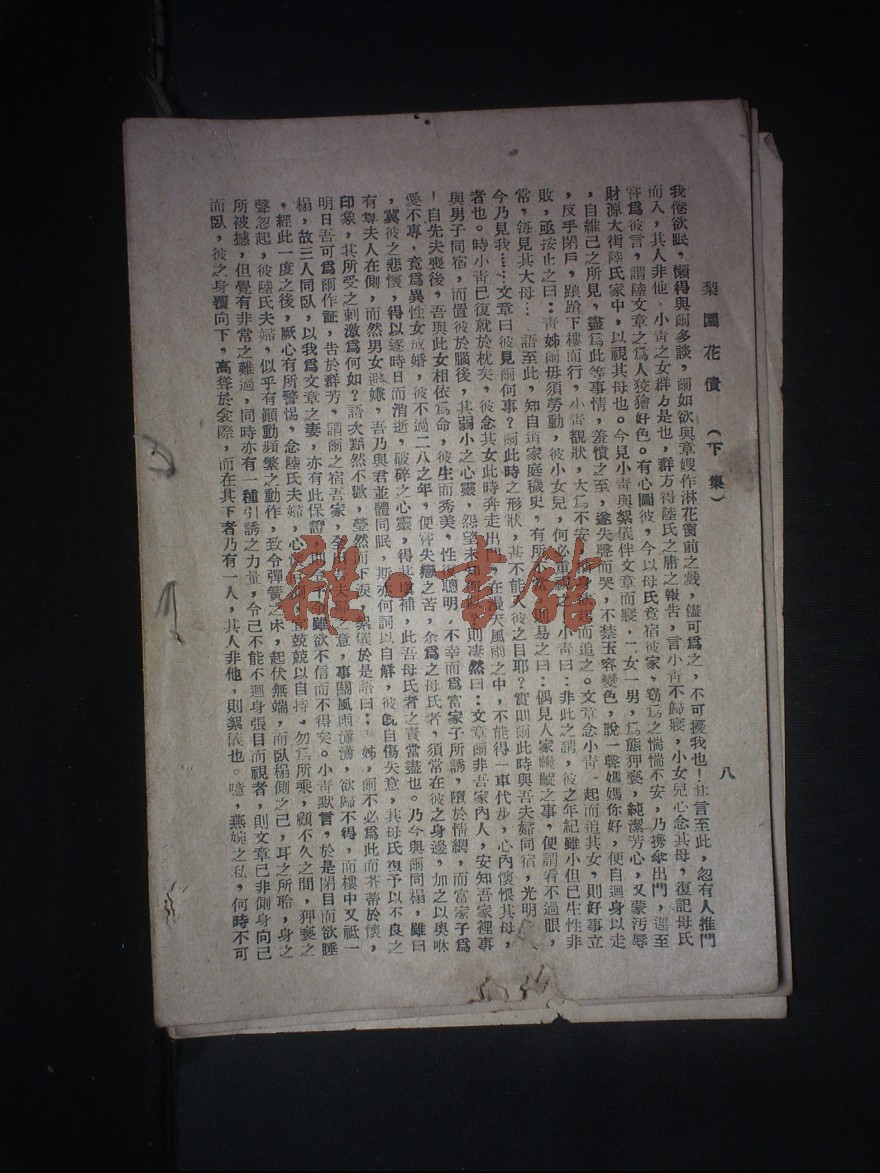 梨園花債 （下集）
八
我倦欲眠，懶得與爾多談，爾如欲與章嫂作淋花窗前之戲，儘可爲之，不可擾我也！其言至此，忽有人推門
而入，其人非他，小靑之女群方是也，群方得陸氏之庸之報告，言小靑不歸寢，小女兒心念其母，復記母氏
嘗爲彼言，謂陸文章之爲人狡獪好色。有心圖彼，今以母氏竟宿彼家，竊爲之惴惴不安，乃携傘出門，逕至
財源大街陸氏家中，以視其母也。今見小靑與絮儀伴文章而寢，二女一男，爲態狎褻，純潔芳心，又蒙汚辱
，自維己之所見，盡爲此等事情，羞憤之至，遂失聲而哭，不禁玉容變色，說一聲媽媽你好，便自迴身以走
，反手閉戶，踉蹌下樓而行，小靑覩狀，大爲不安，起而追之。文章念小靑一起而追其女，則好事立
敗，亟按止之曰：靑姊爾毋須勞動，彼小女兒，何必重視之，小靑曰：非此之謂，彼之年紀雖小但已生性非
常，每見其大母…語至此，知自道家庭穢史，有所不，則易之曰：偶見人家曖昧之事，便謂看不過眼，
今乃見我……文章曰彼見爾何事？爾此時之形狀，其不能入彼之目耶？實則爾此時與吾夫婦同宿，光明
者也。時小靑已復就於枕矣，彼念其女此時奔走出門，在漫天風雨之中，不能得一車代步，心內懷恨其母，
與男子同宿，而置彼於腦後，其弱小之心靈，怨望未知何，則凄然曰：文章爾非吾家內人，安知吾家裡事
！自先夫喪後，吾與此女相依爲命，彼生而秀美，性復聰明，不幸而爲富家子所誘，墮於情網，而富家子爲
愛不專，竟爲異性女成婚，彼不過二八之年，便嘗失戀之苦，余爲之母氏者，須常在彼之身邊，加之以奧咻
，冀彼之悲懷，得以逐時日而消逝，破碎之心靈，得其塡補，此吾母氏者之責當盡也。乃今與爾同榻，雖曰
有尊夫人在側，而然男女避嫌，吾乃與君並體同眠，斯亦何詞以自解，彼旣自傷失意，其母氏復予以不良之
印象，其所受之刺激爲何如？語次黯然不歡，瑩然而下淚，絮儀於是語曰：姊，爾不必爲此而芥蒂於懷，
明日吾可爲爾作証，告於群芳，謂爾之宿吾家，全出夫婦之意，事關風雨瀟瀟，欲歸不得，而樓中又祗一
榻，故三人同臥，以我爲文章之妻，亦有此保證，則雖欲不信而不得矣。小靑默言，於是閉目而欲睡
，經此一度之後，厥心有所警惕，念陸氏夫婦，心，兢兢以自持。勿爲所乘，顧不久之間，狎褻之
聲忽起，彼陸氏夫婦，似乎有顚動頻繁之動作，致令彈簧之床，起伏無端，而臥榻側之己，耳之所聆，身之
所被撼，但覺有非常之難過，同時亦有一種引誘之力量，令己不能不迴身張目而視者，則文章已非側身向己
而臥，彼之身覆向下，高聳於衾際，而在其下者乃有一人，其人非他，則絮儀也。噫，燕婉之私，何時不可